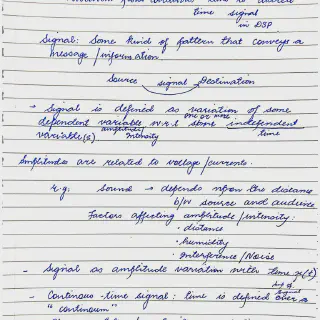 from continuous time to discrete
time signal
in DSP
Signal: Some kind of pattern that conveys a
message/information.
Source signal Destination
- Signal is defined as variation of some
one or more
dependent variable w.r.t some independent
variable(s) amplitude/Intensity time
Amplitudes are related to voltage/currents.
e.g: Sound → depends upon the distance
b/w source and audience
Factors affecting amplitude/intensity:
• distance
• humidity
• Interference/Noise
- Signal as amplitude variation with time x(t)
- Continous-time signal: time is defined over a
"continuum"